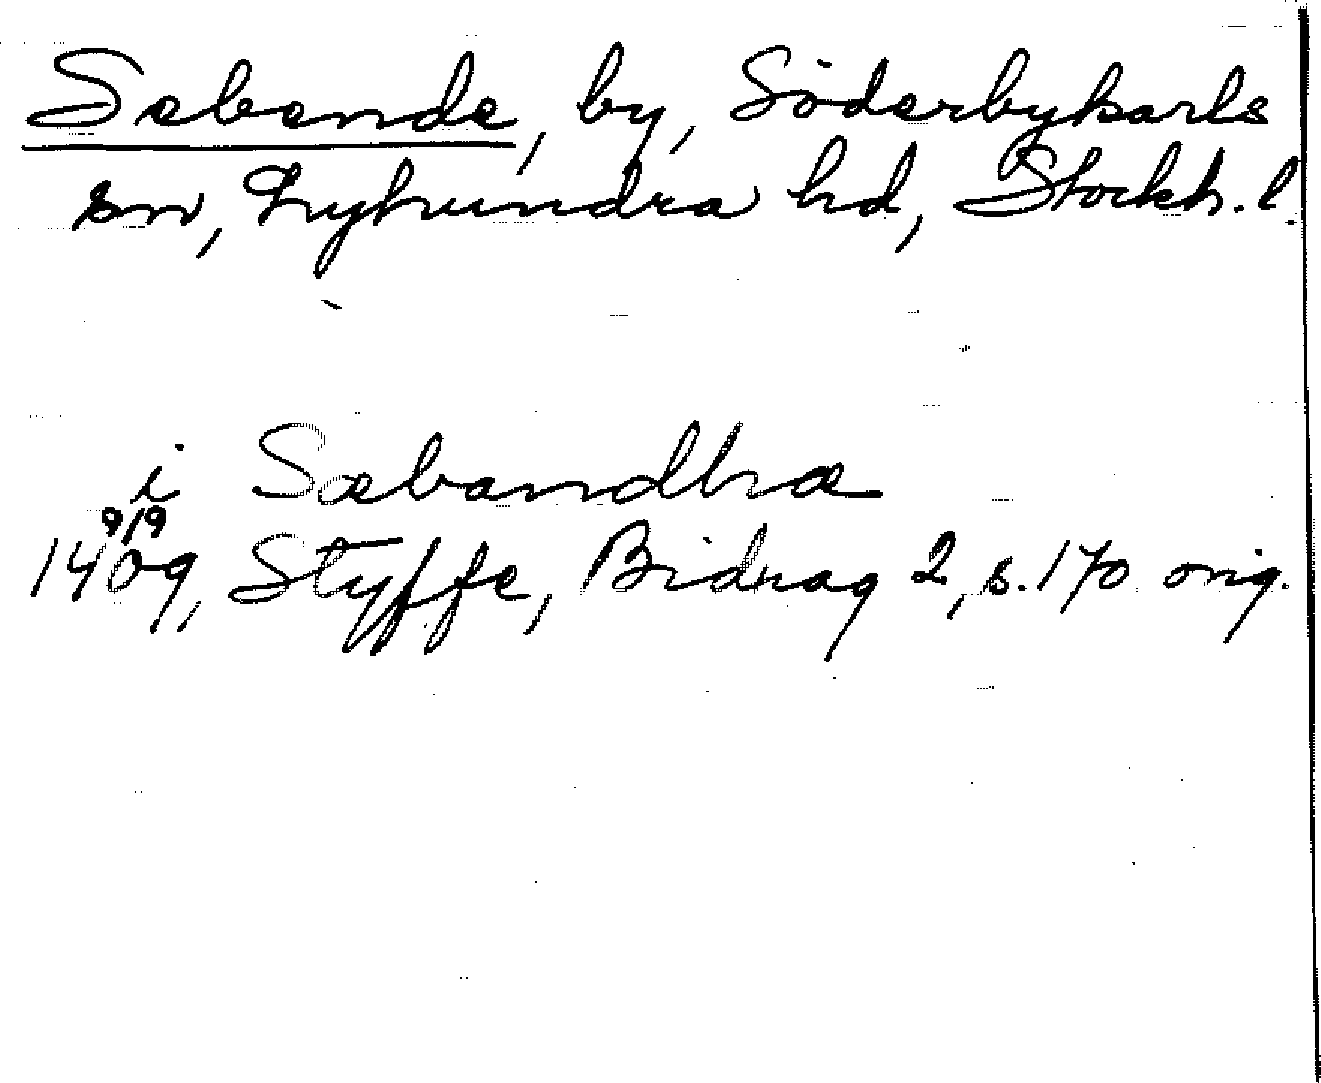 Sebende, by, Söderbykarls
sn, Lyhundra hd, Stockh. l.
i Sæbandhæ
9/9
1409, Styffe, Bidrag 2, s. 170 orig.